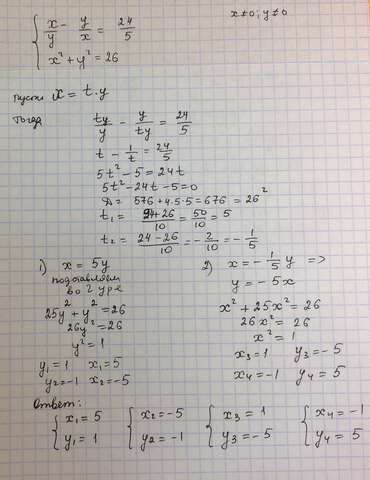 x≠0; y≠0
x/y - y/x = 24/5
x² + y² = 26
пусть x = t·y
тогда
ty/y - y/ty = 24/5
t - 1/t = 24/5
5t² - 5 = 24t
5t² - 24t - 5 = 0
D = 576 + 4·5·5 = 676 = 26²
t₁ = 24+26/10 = 50/10 = 5
t₂ = 24-26/10 = -2/10 = -1/5
1) x = 5y
подставляем
во 2 уре
25y² + y² = 26
26y² = 26
y² = 1
y₁ = 1 x₁ = 5
y₂ = -1 x₂ = -5
2) x = -1/5 y =>
y = -5x
x² + 25x² = 26
26x² = 26
x² = 1
x₃ = 1 y₃ = -5
x₄ = -1 y₄ = 5
Ответ:
{ x₁ = 5 { x₂ = -5 { x₃ = 1 { x₄ = -1
y₁ = 1 y₂ = -1 y₃ = -5 y₄ = 5